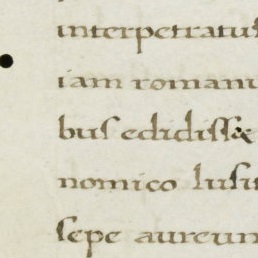 interpretatus
iam romanu
bus edidiss&
nomico lusit
sepe aureum